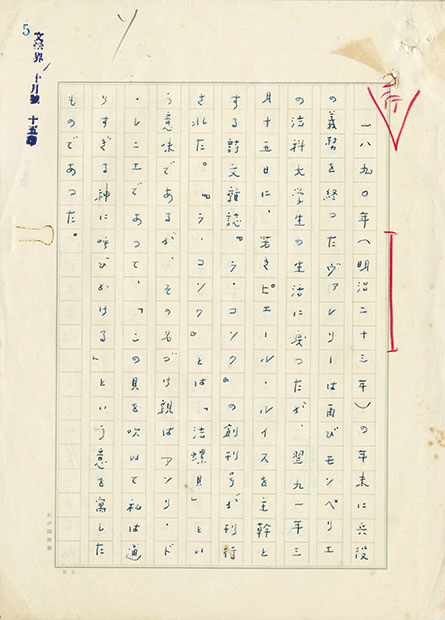 5
文學界 十月號 十五
2行
一八九〇年（明治二十三年）の年末に兵役
の義務を終つたヴァレリーは再びモンペリエ
の法科大学生の生活に戻つたが、翌九一年三
月十五日に、若きピエール・ルイスを主幹と
する詩文雑誌『ラ・コンク』の創刊号が刊行
された。『ラ・コンク』とは「法螺貝」とい
う意味であるが、その名づけ親はアンリ・ド
・レニエであつて、「この貝を吹いて私は通
りすぎる神に呼びかける」という意を寓した
ものであつた。